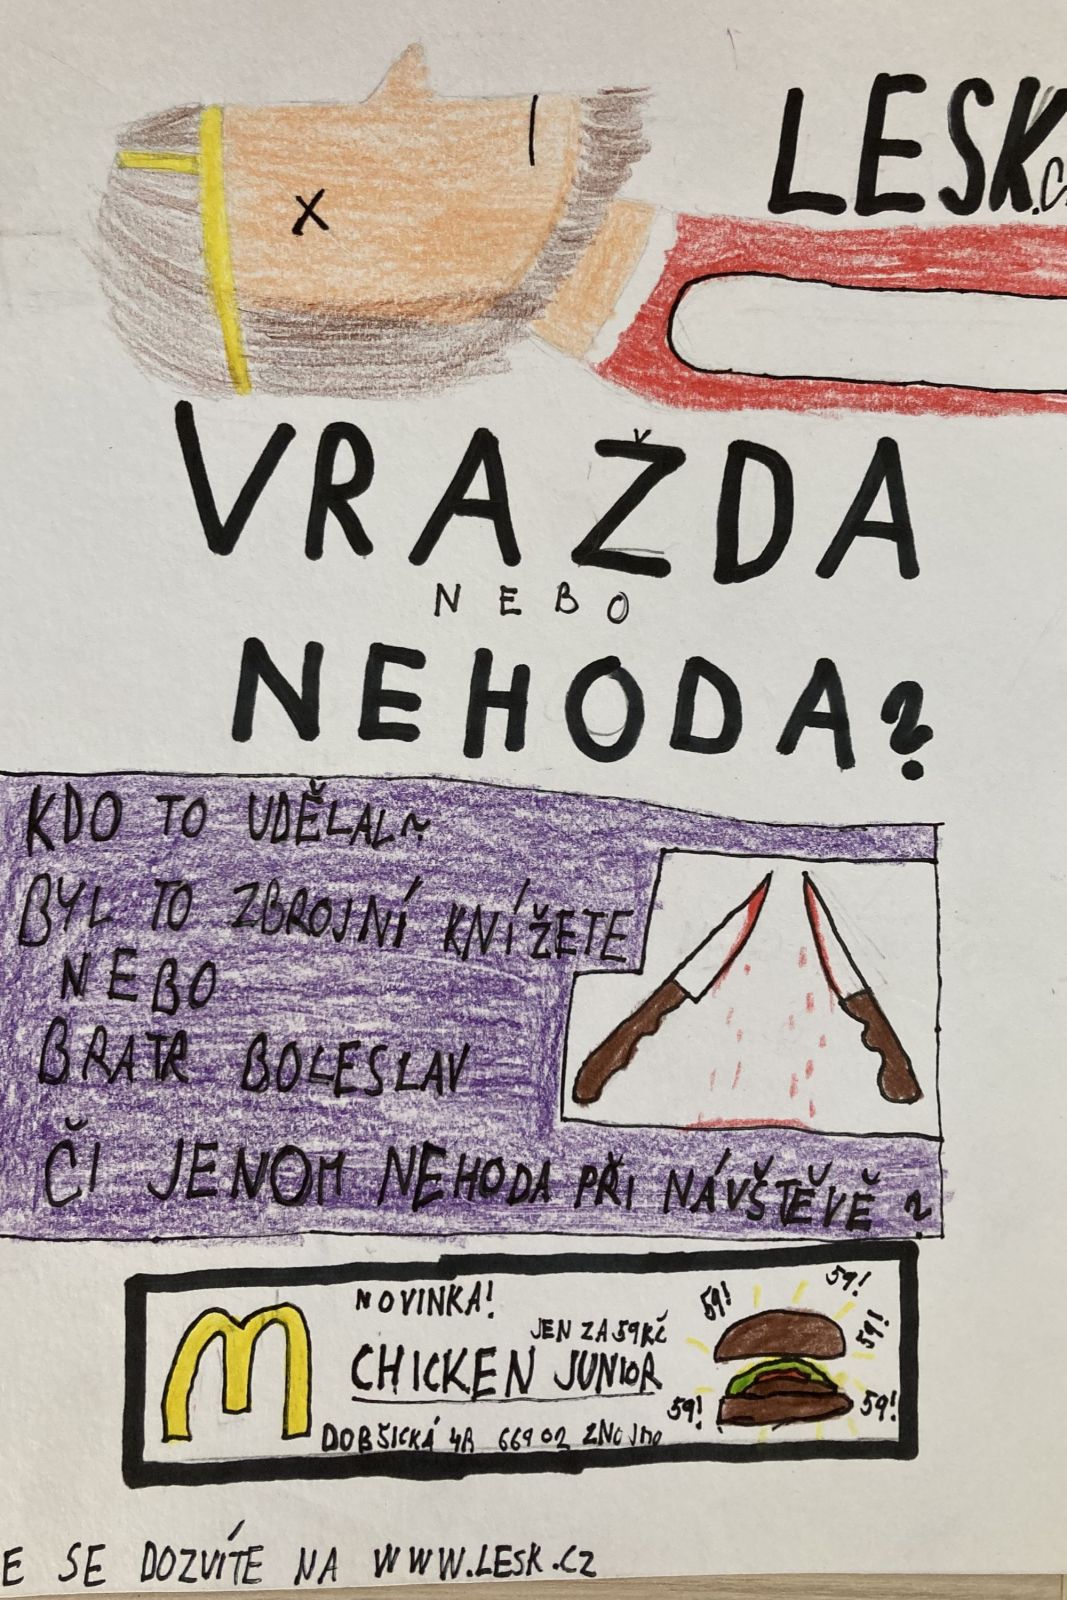 LESK.C
VRAŽDA
NEBO
NEHODA?
KDO TO UDĚLAL?
BYL TO ZBROJNÍ KNÍŽETE
NEBO
BRATR BOLESLAV
ČI JENOM NEHODA PŘI NÁVŠTĚVĚ?
NOVINKA!
JEN ZA 59 KČ
CHICKEN JUNIOR
DOBŠICKÁ 4B 669 02 ZNOJMO
59!
59!
59!
59!
59!
E SE DOZVÍTE NA WWW.LESK.CZ